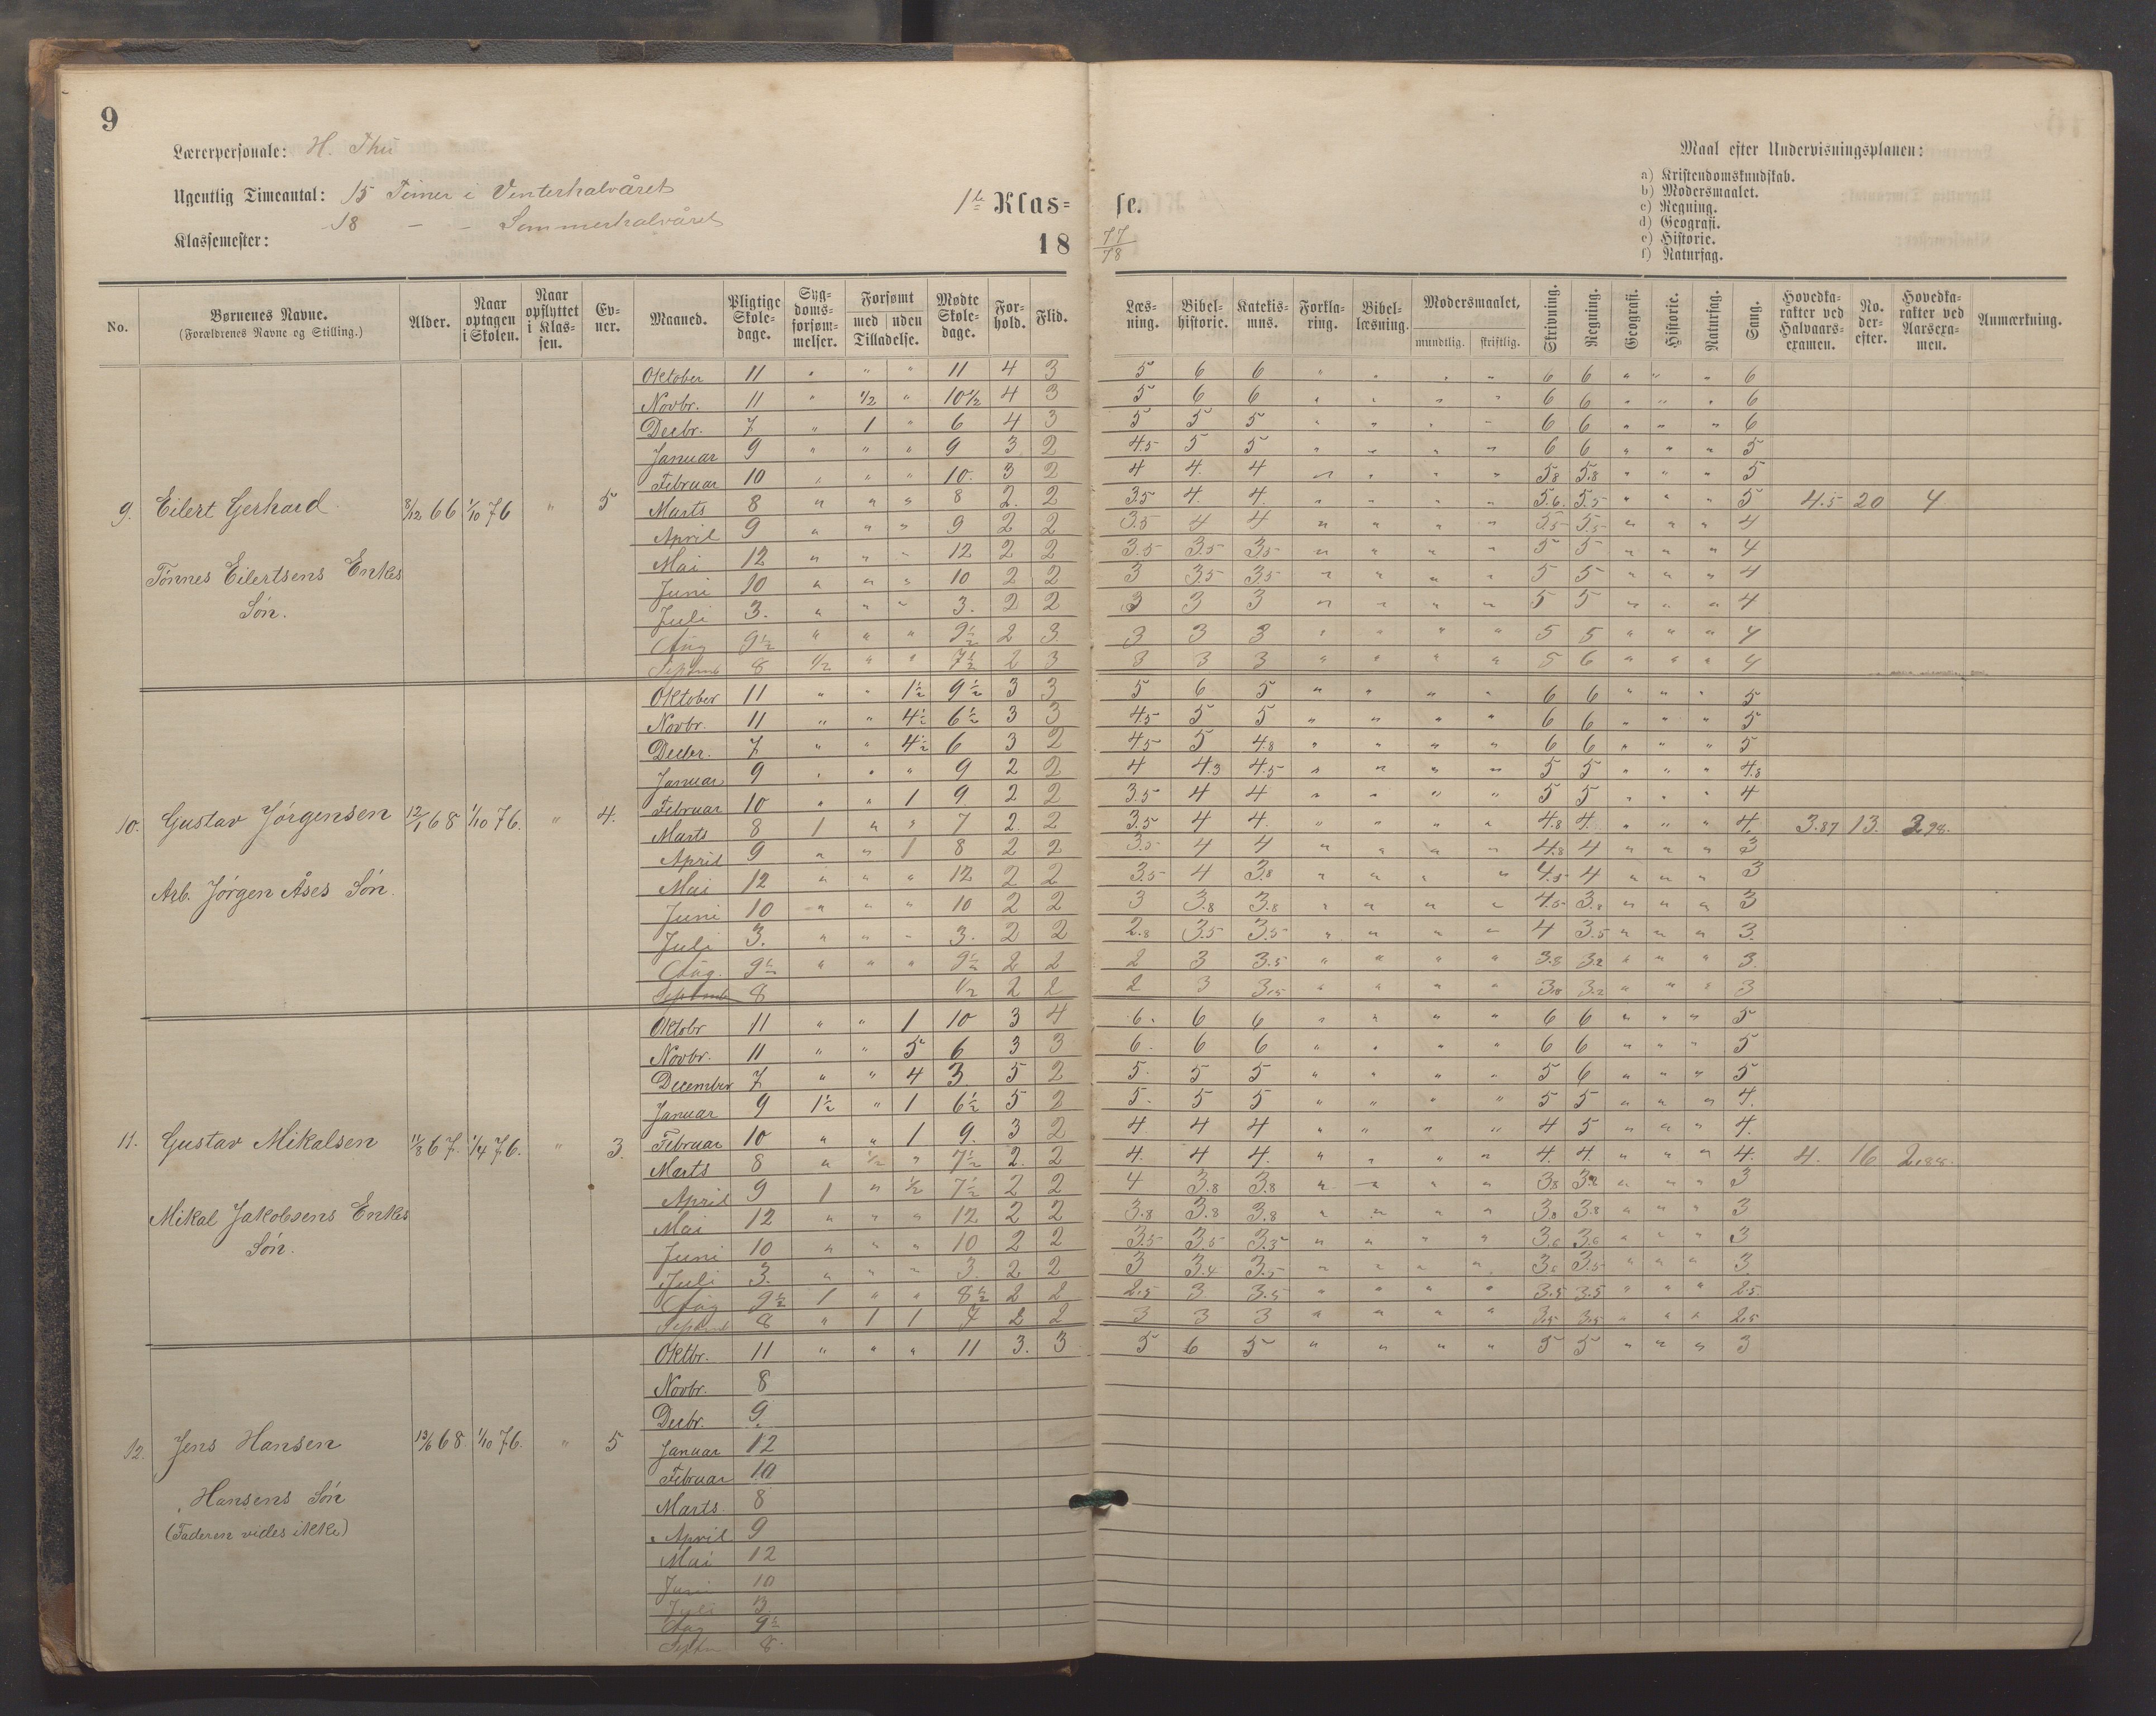 9
Lærerpersonale: H. Thu
Ugentlig Timeantal: 15 Timer i Vinterhalvåret
18 - - Sommerhalvåret
Klassemester:
1ste Klas= se.
18 77/78
Maal efter Undervisningsplanen:
a) Kristendomskundskab.
b) Modersmaalet.
c) Regning.
d) Geografi.
e) Historie.
f) Naturfag.
No. Børnenes Navne. (Forældrenes Navne og Stilling.) Alder. Naar optagen i Skolen. Naar opflyttet i Klassen. Evner. Maaned. Pligtige Skoledage. Sygdomsforsømmelser. Forsømt med uden Tilladelse. Mødte Skoledage. Forhold. Flid. Læsning. Bibelhistorie. Katekismus. Forklaring. Bibellæsning. Modersmaalet, mundtlig. skriftlig. Skrivning. Regning. Geografi. Historie. Naturfag. Sang. Hovedkarakter ved Halvaarsexamen. No. derefter. Hovedkarakter ved Aarsexamen. Anmærkning.
9. Eilert Gerhard 8/12 66 1/10 76 " 5 4.5 20 4
Tönnes Eilertsens Enkes
Sön.
Oktober 11 " " " 11 4 3 5 6 6 " " " " 6 6 " " " 6
Novbr. 11 " 1/2 " 10 1/2 4 3 5 6 6 " " " " 6 6 " " " 6
Decbr. 7 " 1 " 6 4 3 5 5 5 " " " " 6 6 " " " 6
Januar 9 " " " 9 3 2 4.5 5 5 " " " " 6 6 " " " 5
Februar 10 " " " 10. 3 2 4 4. 4 " " " " 5.8 5.8 " " " 5
Marts 8 " " " 8 2. 2 3.5 4. 4. " " " " 5.6. 5.5 " " " 5
April 9 " " " 9 2 2 3.5 4 4 " " " " 5.5 5.5 " " " 4
Mai 12 " " " 12 2 2 3.5 3.5 3.5 " " " " 5 5 " " " 4
Juni 10 " " " 10 2 2 3 3.5 3.5 " " " " 5 5 " " " 4
Juli 3. " " " 3. 2 2 3 3 3 " " " " 5 5 " " " 4
Aug 9 1/2 " " " 9 1/2 2 3 3 3 3 " " " " 5 5 " " " 4
Septemb 8 1/2 " " 7 1/2 2 3 3 3 3 " " " " 5 6 " " " 4
10. Gustav Jörgensen 12/1 68 1/10 76. " 4. 3.87 13. 2.98.
Arb. Jörgen Åses Sön.
Oktober 11 " " 1 1/2 9 1/2 3 3 5 6 5 " " " " 6 6 " " " 5
Novbr. 11 " " 4 1/2 6 1/2 3 3 4.5 5 5 " " " " 6 6 " " " 5
Decbr. 7 " " 4 1/2 6 3 2 4.5 5 4.8 " " " " 6 6 " " " 5
Januar 9 " " " 9 2 2 4 4.3 4.5 " " " " 5 5 " " " 4.8
Februar 10 " " 1 9 2 2 3.5 4 4 " " " " 5 5 " " " 4
Marts 8 1 " " 7 2. 2 3.5 4 4. " " " " 4.8 4. " " " 4.
April 9 " " 1 8 2 2 3.5 4 4 " " " " 4.8 4 " " " 3
Mai 12 " " " 12 2 2 3.5 4 3.8 " " " " 4.5 4 " " " 3
Juni 10 " " " 10 2 2 3 3.8 3.8 " " " " 4.5 3.8 " " " 3
Juli 3. " " " 3. 2 2 2.8 3.5 3.5 " " " " 4 3.5 " " " 3.
Aug. 9 1/2 " " " 9 1/2 2 2 2 3 3.5 " " " " 3.8 3.2 " " " 3.
Septemb 8 1/2 2 2 2 3 3.5 " " " " 3.8 3.2 " " " 3
11. Gustav Mikalsen 11/8 67. 1/4 76. " 3. 4. 16 2.88.
Mikal Jakobsens Enkes
Sön.
Oktobr 11 " " 1 10 3 4 6. 6 6 " " " " 6 6 " " " 5
Novbr. 11 " " 5 6 3 3 6. 6 6 " " " " 6 6 " " " 5
December 7 " " 4 3. 5 2 5. 5 5 " " " " 5 6 " " " 5
Januar 9 1 1/2 " 1 6 1/2 5 2 5. 5 5 " " " " 5 5 " " " 4.
Februar 10 " " 1 9. 3 2 4 4 4 " " " " 4 5 " " " 4.
Marts 8 " 1/2 " 7 1/2 2. 2 4. 4 4. " " " " 4. 4. " " " 4.
April 9 1 " 1/2 7 1/2 2 2 4 3.8 3.8 " " " " 3.8 3.8 " " " 3
Mai 12 " " " 12 2 2 3.8 3.8 3.8 " " " " 3.8 3.8 " " " 3
Juni 10 " " " 10 2 2 3.5 3.5 3.5 " " " " 3.6 3.6 " " " 3
Juli 3. " " " 3. 2 2 3 3.4 3.5 " " " " 3.5 3.5 " " " 3
Aug 9 1/2 1 " " 8 1/2 2 2 2.5 3 3.5 " " " " 3.5 3.5 " " " 2.5
Septemb 8 " 1 1 7 2 2 3 3 3 " " " " 3.5 3.5 " " " 2.5
12. Jens Hansen 13/6 68 1/10 76. " 5
Hansens Sön
(Faderen vides ikke)
Oktbr. 11 " " " 11 3. 3 5 6 5 " " " " 5 5 " " " 3
Novbr. 8
Decbr. 9
Januar 12
Februar 10
Marts. 8
April 9
Mai 12
Juni 10
Juli 3
Aug 9 1/2
Septm 8